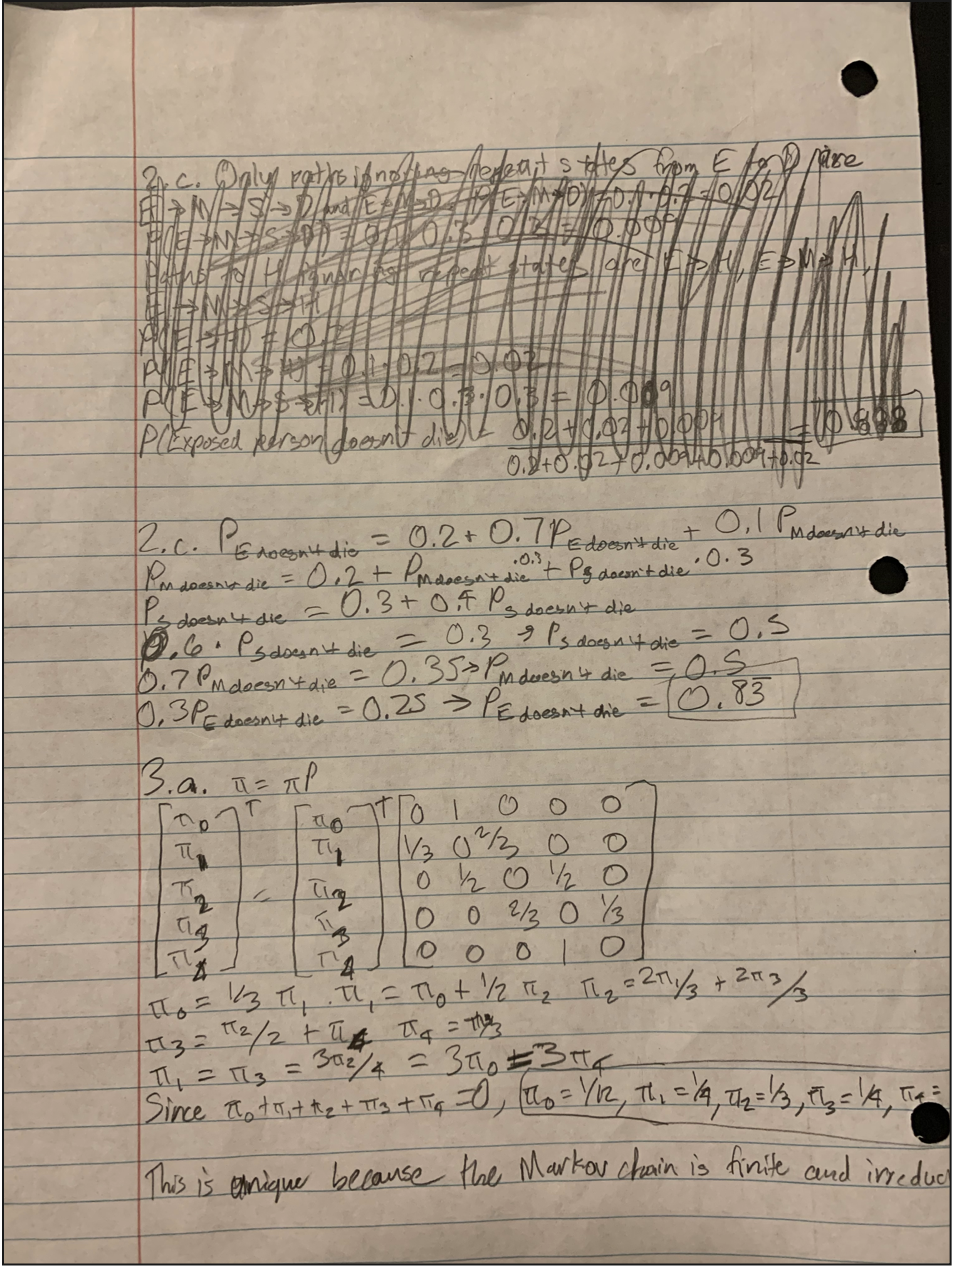 2.c. Only paths ignoring repeat states from E to D are
E→M→S→D and E→M→D. P(E→M→D)=0.1·0.2=0.02
P(E→M→S→D) = 0.1·0.3·0.3 = 0.009
Paths to H ignoring repeat states are E→H, E→M→H,
E→M→S→H
P(E→H) = 0.2
P(E→M→H) = 0.1·0.2 = 0.02
P(E→M→S→H) = 0.1·0.3·0.3 = 0.009
P(Exposed person doesn't die) = 0.2+0.02+0.009 =
0.2+0.02+0.009+0.009+0.02
2.c. P_E doesn't die = 0.2 + 0.7P_E doesn't die + 0.1 P_M doesn't die
P_M doesn't die = 0.2 + P_M doesn't die ·0.3 + P_S doesn't die · 0.3
P_S doesn't die = 0.3 + 0.4 P_S doesn't die
0.6 · P_S doesn't die = 0.3 → P_S doesn't die = 0.5
0.7 P_M doesn't die = 0.35 → P_M doesn't die = 0.5
0.3P_E doesn't die = 0.25 → P_E doesn't die = 0.83̅
3.a. π = πP
[π0 π1 π2 π3 π4]ᵀ = [π0 π1 π2 π3 π4]ᵀ [0 1 0 0 0
1/3 0 2/3 0 0
0 1/2 0 1/2 0
0 0 2/3 0 1/3
0 0 0 1 0]
π0 = 1/3 π1 . π1 = π0 + 1/2 π2 π2 = 2π1/3 + 2π3/3
π3 = π2/2 + π4 π4 = π3/3
π1 = π3 = 3π2/4 = 3π0 = 3π4
Since π0+π1+π2+π3+π4=0, π0=1/12, π1=1/4, π2=1/3, π3=1/4, π4=
This is unique because the Markov chain is finite and irreduc